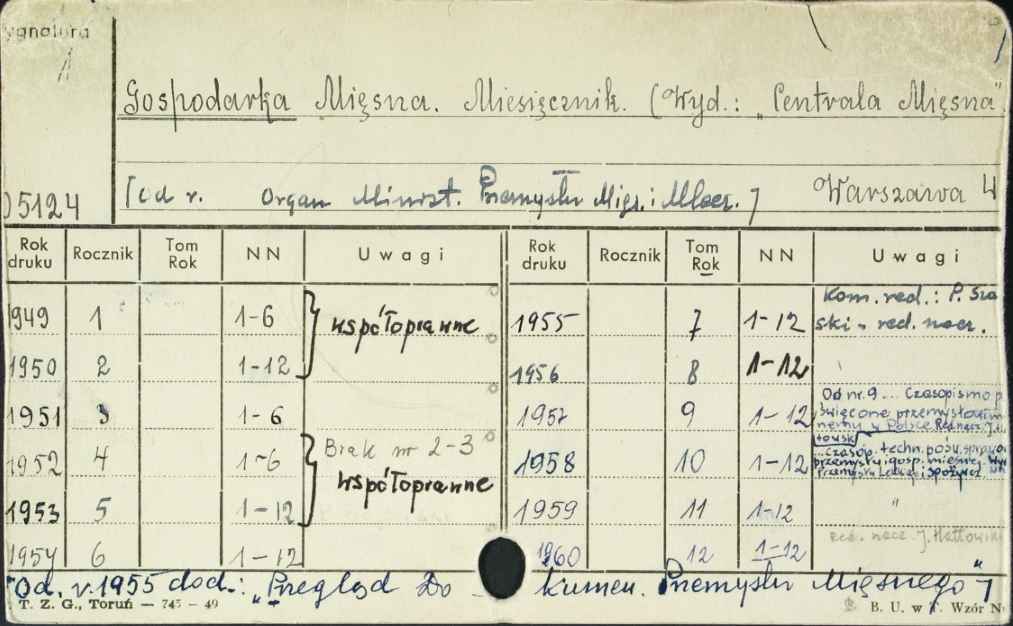 ygnatura
1
Gospodarka Mięsna. Miesięcznik. (Wyd.: „Centrala Mięsna"
05124
[od r. Organ Minist. Przemysłu Mięs. i Mlecz.] Warszawa 4
Rok druku Rocznik Tom Rok NN Uwagi Rok druku Rocznik Tom Rok NN Uwagi
1949 1 1-6 współoprawne 1955 7 1-12 Kom. red.: P. Sza
ski - red. nacz.
1950 2 1-12 1956 8 1-12
1951 3 1-6 1957 9 1-12 Od nr. 9 ... Czasopismo p
święcone przemysłowi m
w Polsce
1952 4 1-6 Brak nr 2-3 1958 10 1-12 ...czasop. techn. pośw. spraw
przemysłu i gosp. mięsnej.
Przemysłu i spożywcz.
współoprawne
1953 5 1-12 1959 11 1-12 "
1954 6 1-12 1960 12 1-12 red. nacz. J.
Od. r. 1955 dod.: „Przegląd Do - kumen. Przemysłu Mięsnego"]
T. Z. G., Toruń — 745 - 49
B. U. w T. Wzór N